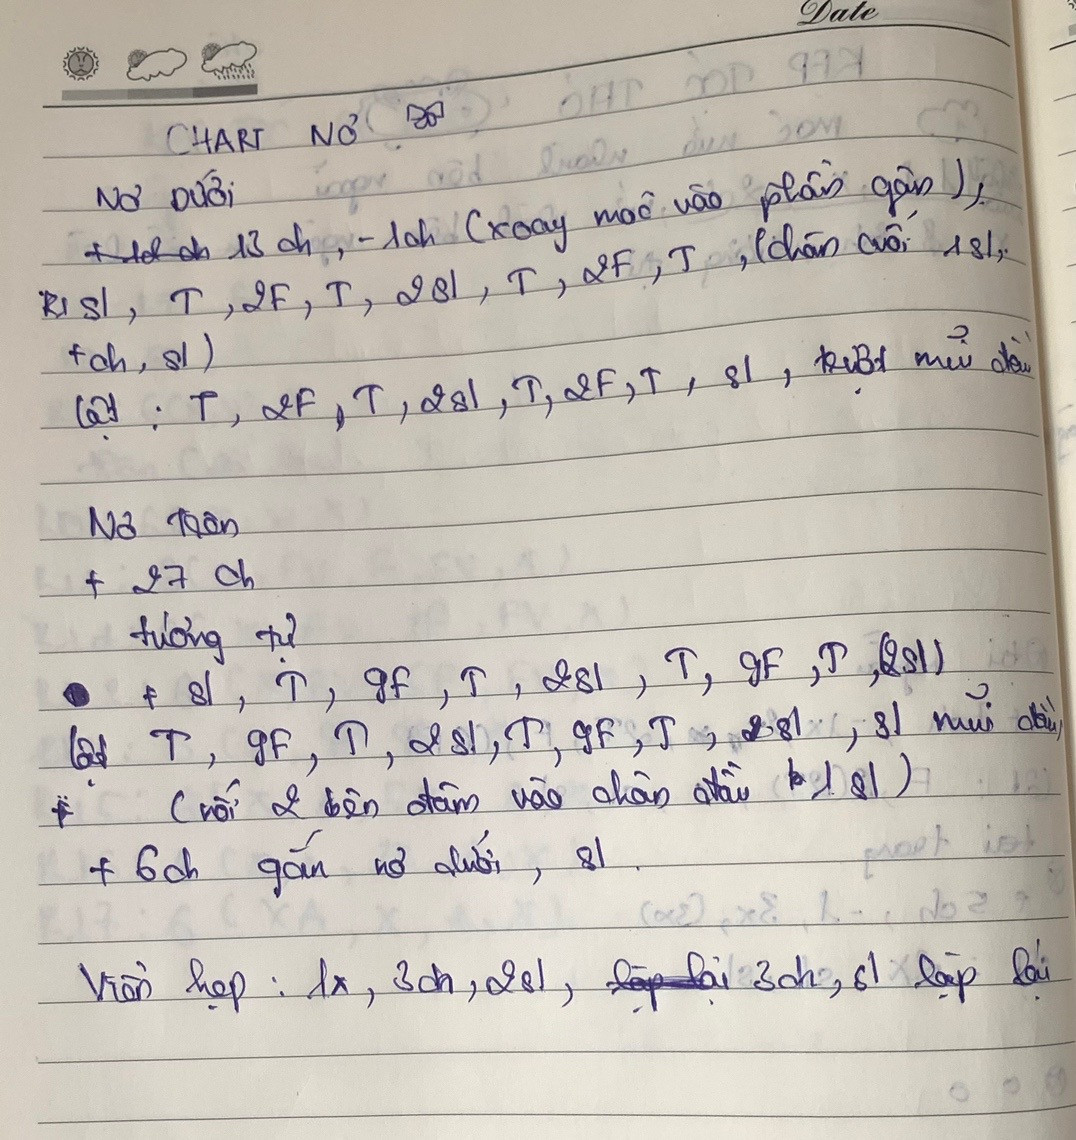 Date
CHART NƠ
NƠ DƯỚI
13 ch, -1ch (xoay móc vào phần gân),
R1 sl, T, 2F, T, 2sl, T, 2F, T, (chân cuối 1sl,
+ch, sl)
Lật : T, 2F, T, 2sl, T, 2F, T, sl, mũi đầu
Nơ trên
+ 27 ch
tương tự
+ sl, T, 9F, T, 2sl, T, 9F, T, (2sl)
Lật T, 9F, T, 2sl, T, 9F, T, 2sl, sl mũi đầu,
+ (nối 2 bên đâm vào chân đầu 1 sl)
+ 6ch gắn nơ dưới, sl.
Viền hẹp : 1x, 3ch, 2sl, 3ch, sl lặp lại